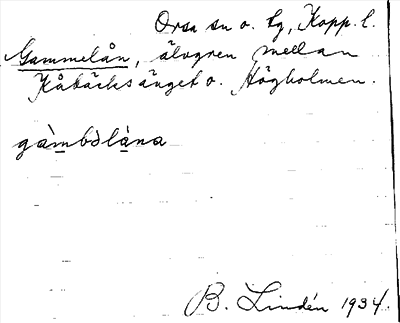 Orsa sn o. tg, Kopp. l.
Gammelån, älvgren mellan
Kåbäcksänget o. Högholmen.
gàmbòlàna
B. Lindén 1934.